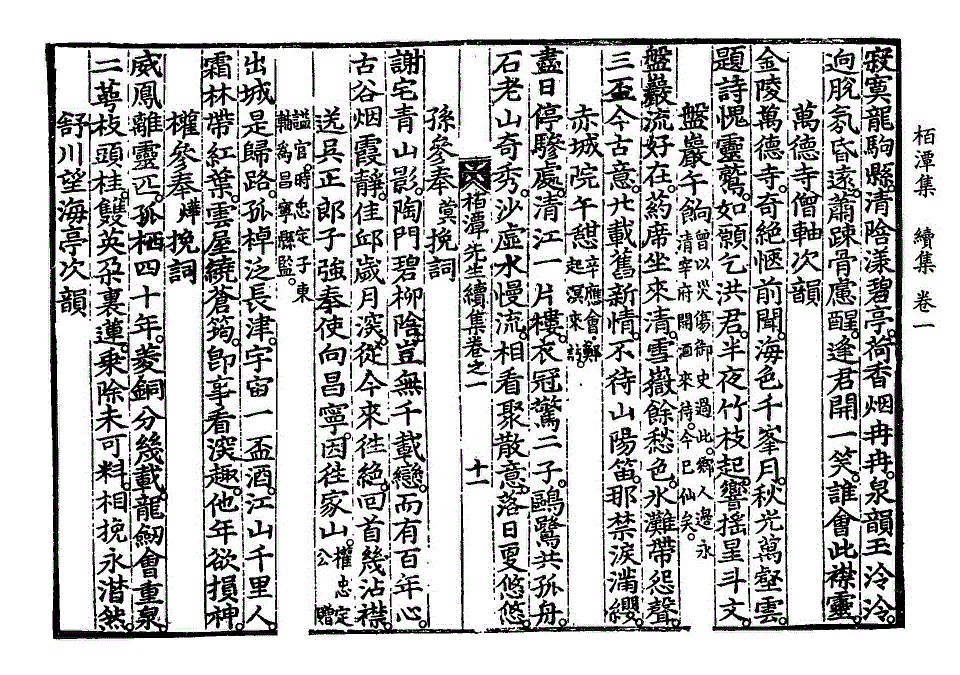 栢潭集 續集 卷一
寂寞龍駒縣。清陰漾碧亭。荷香烟冉冉。泉韻玉泠泠。
逈脫氛昏遠。蕭踈骨慮醒。逢君開一笑。誰會此襟靈。
萬德寺僧軸次韻
金陵萬德寺。奇絶愜前聞。海色千峯月。秋光萬壑雲。
題詩愧靈鷲。如願乞洪君。半夜竹枝起。響搖星斗文。
盤巖午餉 餉曾以災傷御史過此。鄕人邊永淸宰府開酒來待。今已仙矣。
盤巖流好在。葯席坐來淸。雪嶽餘愁色。氷灘帶怨聲。
三盃今古意。廿載舊新情。不待山陽笛。那禁淚滿纓。
赤城院午憇 辛應會解起溟來
盡日停驂處。淸江一片樓。衣冠驚二子。鷗鷺共孤舟。
石老山奇秀。沙虛水慢流。相看聚散意。落日更悠悠。
栢潭先生續集卷之一 十一
孫參奉 挽詞
謝宅靑山影。陶門碧柳陰。豈無千載戀。而有百年心。
古谷烟霞靜。佳邱歲月深。從今來往絶。回首幾沾襟。
送吳正郎子強奉使向昌寧。因往家山。權忠定公贈
謚官。時忠定子東輔爲昌寧縣監。
出城是歸路。孤棹泛長津。宇宙一盃酒。江山千里人。
霜林帶紅葉。雲屋繞蒼筠。卽事看深趣。他年欲損神。
權參奉 挽詞
威鳳離靈匹。孤栖四十年。菱銅分幾載。龍劒會重泉。
二萼枝頭桂。雙英朶裏蓮。乘除未可料。相挽永潸然。
舒川望海亭次韻